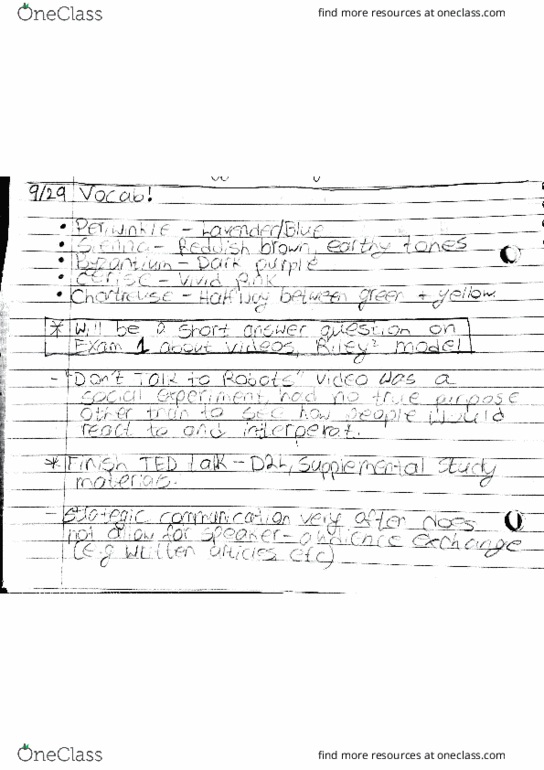 OneClass
find more resources at oneclass.com
9/29 Vocab!
• Periwinkle - Lavender/Blue
• Sienna - Reddish brown, earthy tones
• Byzantium - Dark purple
• Cerise - Vivid Pink
• Chartreuse - Halfway between green + yellow
* Will be a short answer question on
Exam 1 about videos, Riley² model
- "Don't Talk to Robots" video was a
social experiment, had no true purpose
other than to see how people would
react to and interperat.
* Finish TED Talk - D2L, Supplemental study
materials.
- Strategic communication very often does
not allow for speaker-audience exchange
(e.g written articles etc)
OneClass
find more resources at oneclass.com